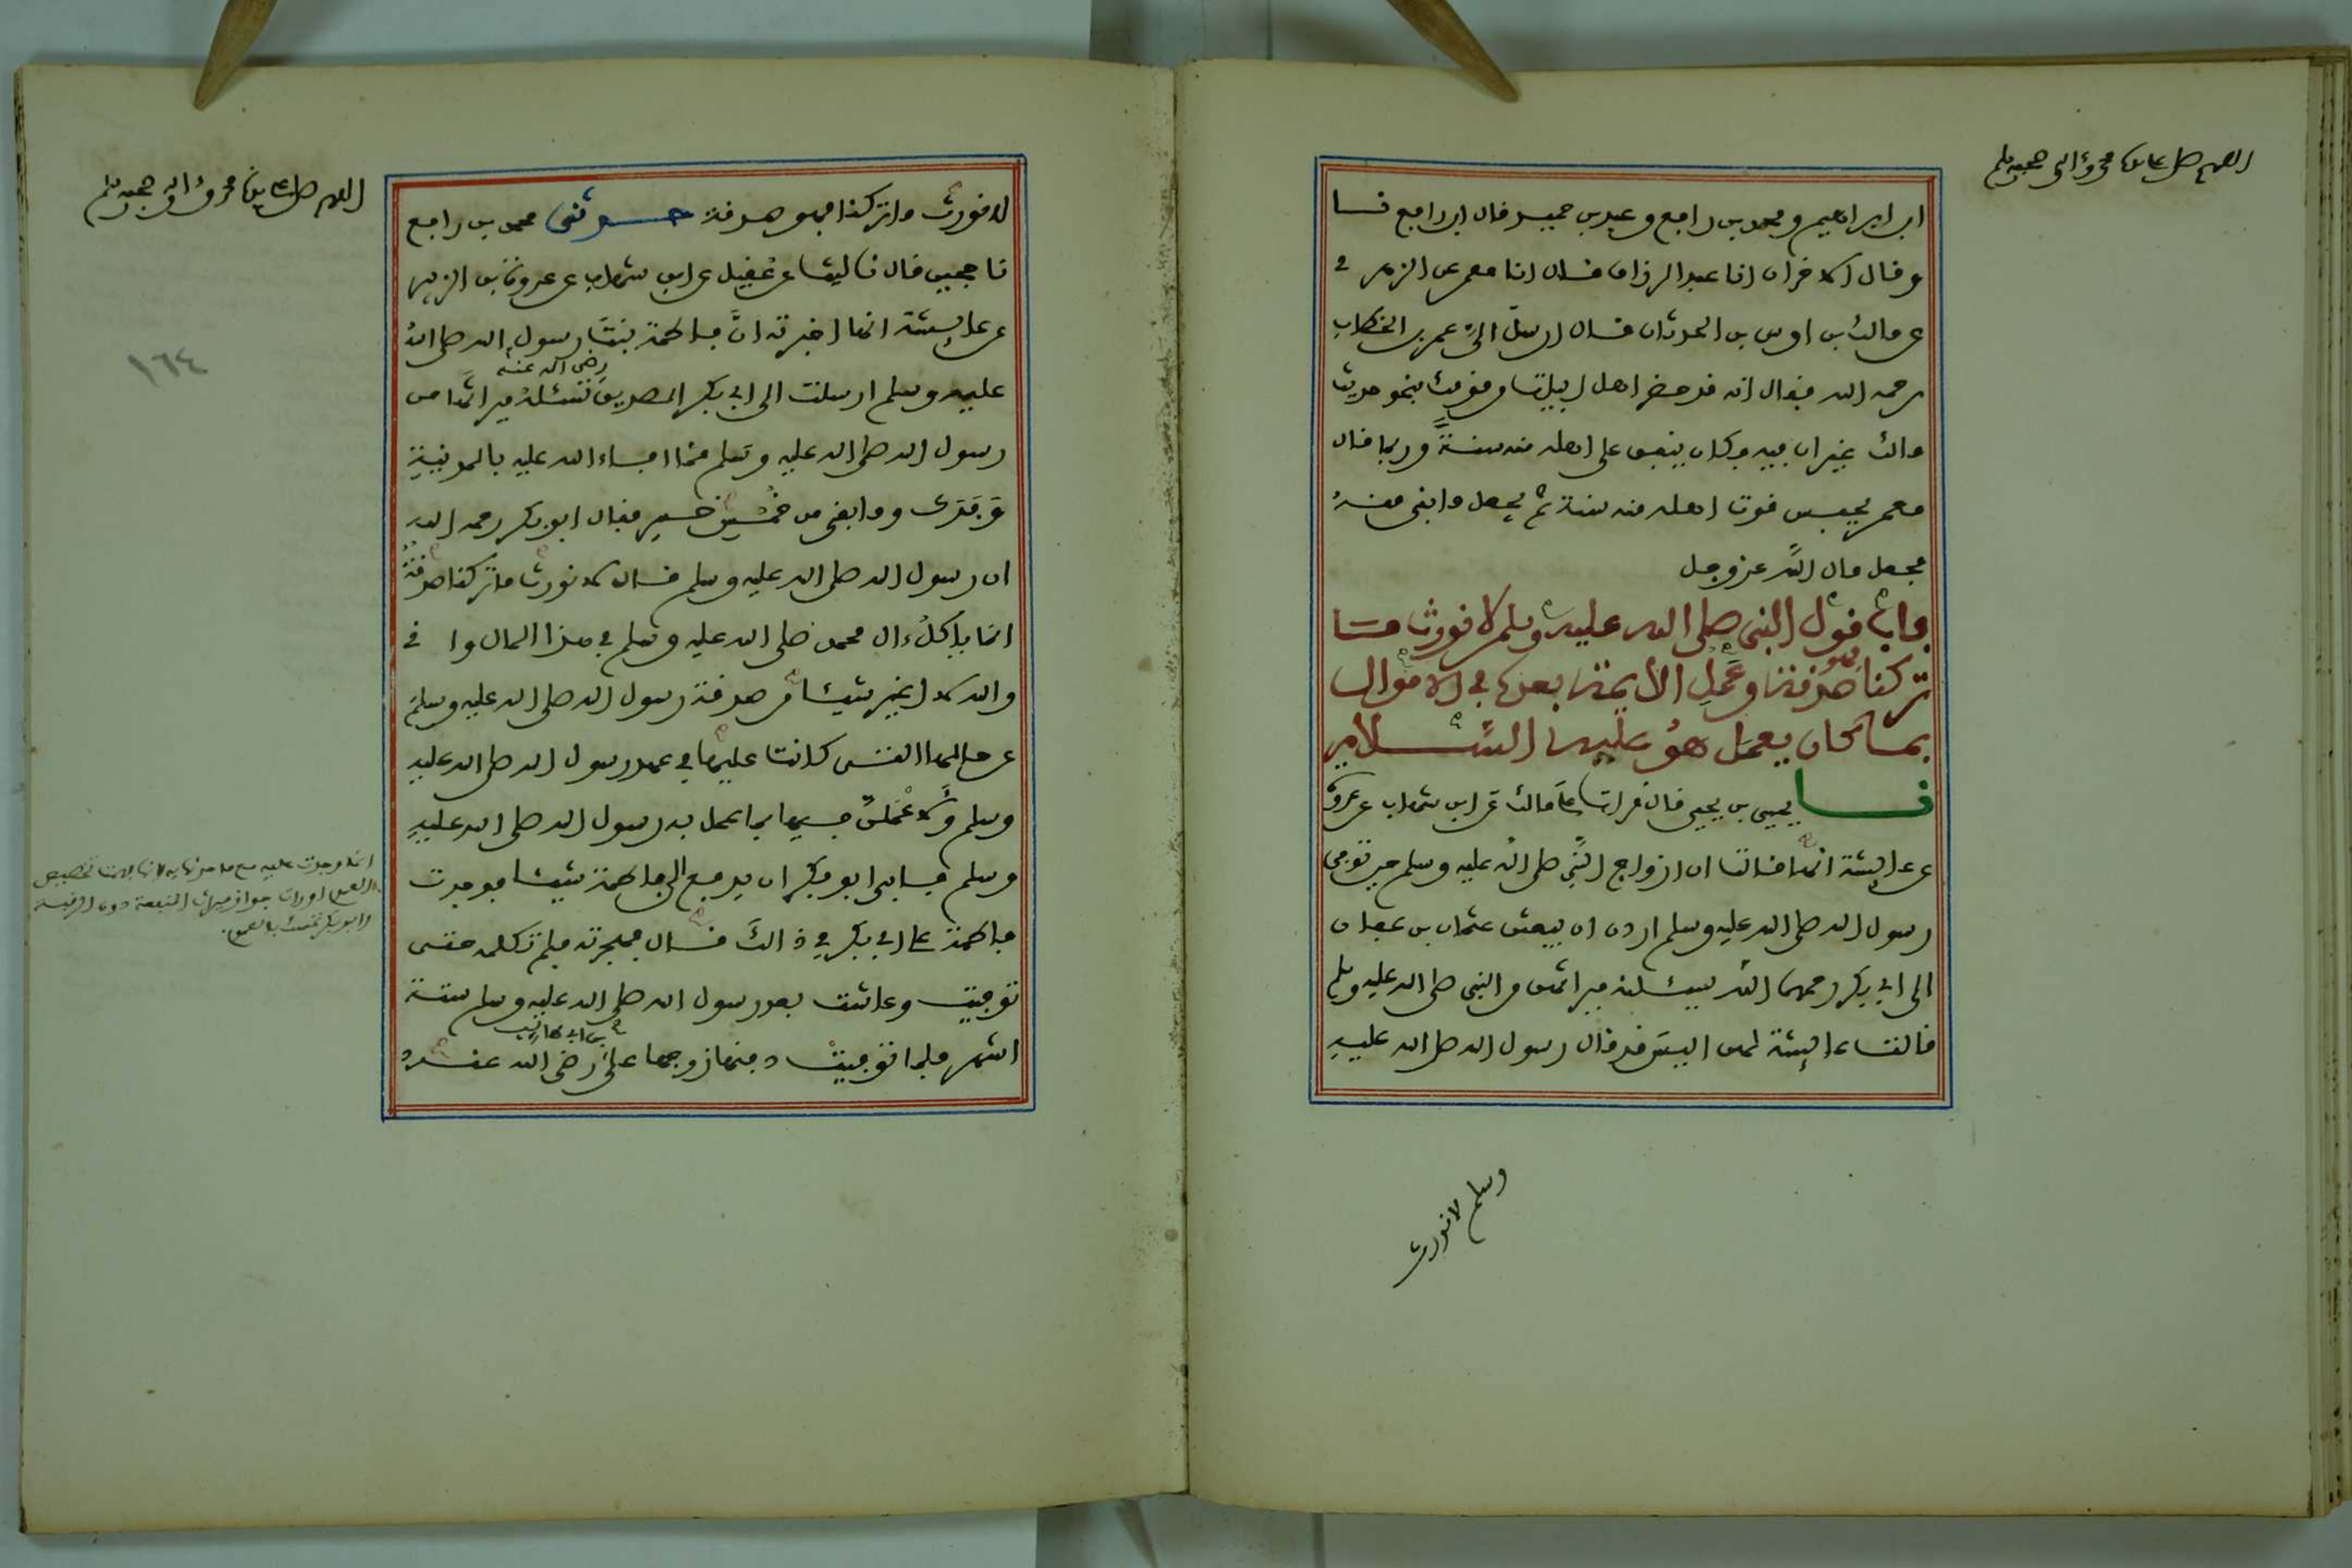 اللهم صل على سيدنا محمد وآله وصحبه وسلم
ابن ابراهيم ومحمد بن رافع وعبد بن حميد قال ابن رافع نا
وقال الاخران انا عبد الرزاق قال انا معمر عن الزهري
عن مالك بن اوس بن الحدثان قال ارسل الي عمر بن الخطاب
رحمه الله فقال انه قد حضر اهل ابيات من قومك بنحو حديث
مالك غير ان فيه وكان ينفق على اهله منه سنة وربما قال
معمر يحبس قوت اهله منه سنة ثم يجعل ما بقي منه
مجعل مال الله عز وجل
باب قول النبي صلى الله عليه وسلم لا نورث ما
تركنا فهو صدقة وعمل الأيمة بعده في الاموال
بما كان يعمل هو عليه السلام
نا يحيى بن يحيى قال قرات على مالك عن ابن شهاب عن عروة
عن عائشة انها قالت ان ازواج النبي صلى الله عليه وسلم حين توفي
رسول الله صلى الله عليه وسلم اردن ان يبعثن عثمان بن عفان
الى ابي بكر رحمهما الله يسئلنه ميراثهن من النبي صلى الله عليه وسلم
قالت عائشة لهن اليس قد قال رسول الله صلى الله عليه
وسلم لا نورث
اللهم صل على سيدنا محمد وآله وصحبه وسلم
لا نورث ما تركنا فهو صدقة حدثني محمد بن رافع
نا حجين قال نا ليث عن عقيل عن ابن شهاب عن عروة بن الزبير
عن عائشة انها اخبرته ان فاطمة بنت رسول الله صلى الله
عليه وسلم ارسلت الى ابي بكر الصديق رضي الله عنه تسئله ميراثها من
رسول الله صلى الله عليه وسلم مما افاء الله عليه بالمدينة
وفدك وما بقي من خمس خيبر فقال ابو بكر رحمه الله
ان رسول الله صلى الله عليه وسلم قال لا نورث ما تركنا صدقة
انما ياكل ءال محمد صلى الله عليه وسلم في هذا المال وا ني
والله لا اغير شيئا من صدقة رسول الله صلى الله عليه وسلم
عن حالها التي كانت عليها في عهد رسول الله صلى الله عليه
وسلم ولاعملن فيها بما عمل به رسول الله صلى الله عليه
وسلم فابى ابو بكر ان يدفع الى فاطمة شيئا فوجدت
فاطمة على ابي بكر في ذالك قال فهجرته فلم تكلمه حتى
توفيت وعاشت بعد رسول الله صلى الله عليه وسلم ستة
اشهر فلما توفيت دفنها زوجها علي بن ابي طالب رضي الله عنه
١٦٤